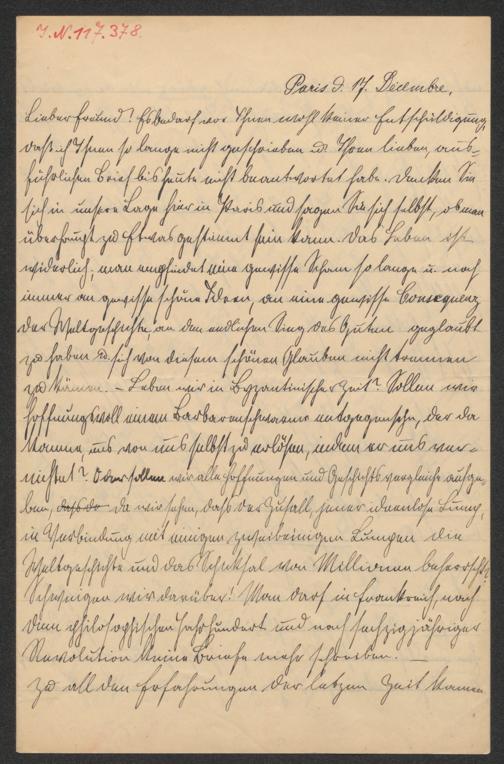 J. N. 117.378
Paris d. 17. Decembre.
Lieber Freund! Es bedarf vor Ihnen wohl keiner Entschuldigung,
daß ich Ihnen so lange nicht geschrieben u. Ihren lieben, aus-
führlichen Brief bis heute nicht beantwortet habe. Denken Sie
sich in unsere Lage hier in Paris und sagen Sie sich selbst, ob man
überhaupt zu Etwas gestimmt sein kann. Das Leben ist
widerlich; man empfindet eine gewisse Scham so lange u. noch
immer an gewisse schöne Ideen, an eine gewisse Consequenz
der Weltgeschichte, an den endlichen Sieg des Guten geglaubt
zu haben u. sich von diesem schönen Glauben nicht trennen
zu können. – Leben wir in Byzantinischer Zeit? Sollen wir
hoffnungsvoll einem Barbarenschwarme entgegensehn, der da
komme uns von uns selbst zu erlösen, indem er uns ver-
nichtet? Oder sollen wir alle Hoffnungen und Geschichtsvergleiche aufge-
ben, daß da da wir sehen, daß der Zufall, jener ideenlose Lump,
in Verbindung mit einigen zweibeinigen Lumpen die
Weltgeschichte und das Schicksal von Millionen beherrscht?
Schweigen wir darüber! Man darf in Frankreich, nach
dem philosophischen Jahrhundert und nach sechzigjähriger
Revolution keine Briefe mehr schreiben. —
Zu all den Erfahrungen der letzen Zeit kamen